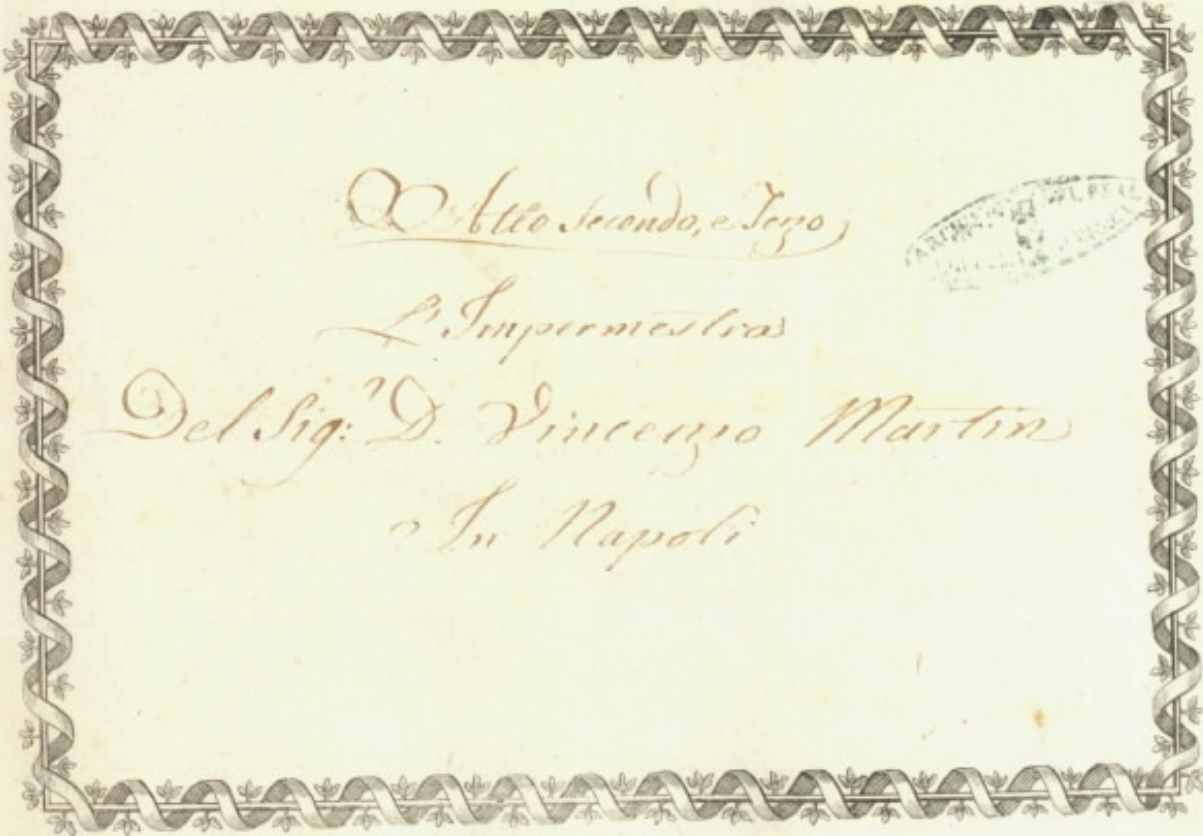 Atto Secondo, e Terzo
L'Impermestra
Del Sig.r D. Vincenzo Martin
In Napoli